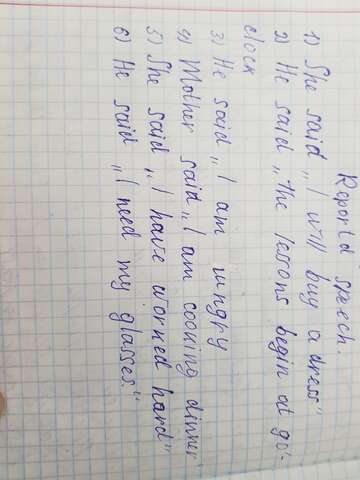 Reportd speech.
1) She said „I will buy a dress"
2) He said „the lessons begin at 9 o'-
clock
3) He said „I am ungry
4) Mother said „I am cooking dinner
5) She said „I have worned hard"
6) He said „I need my glasses."